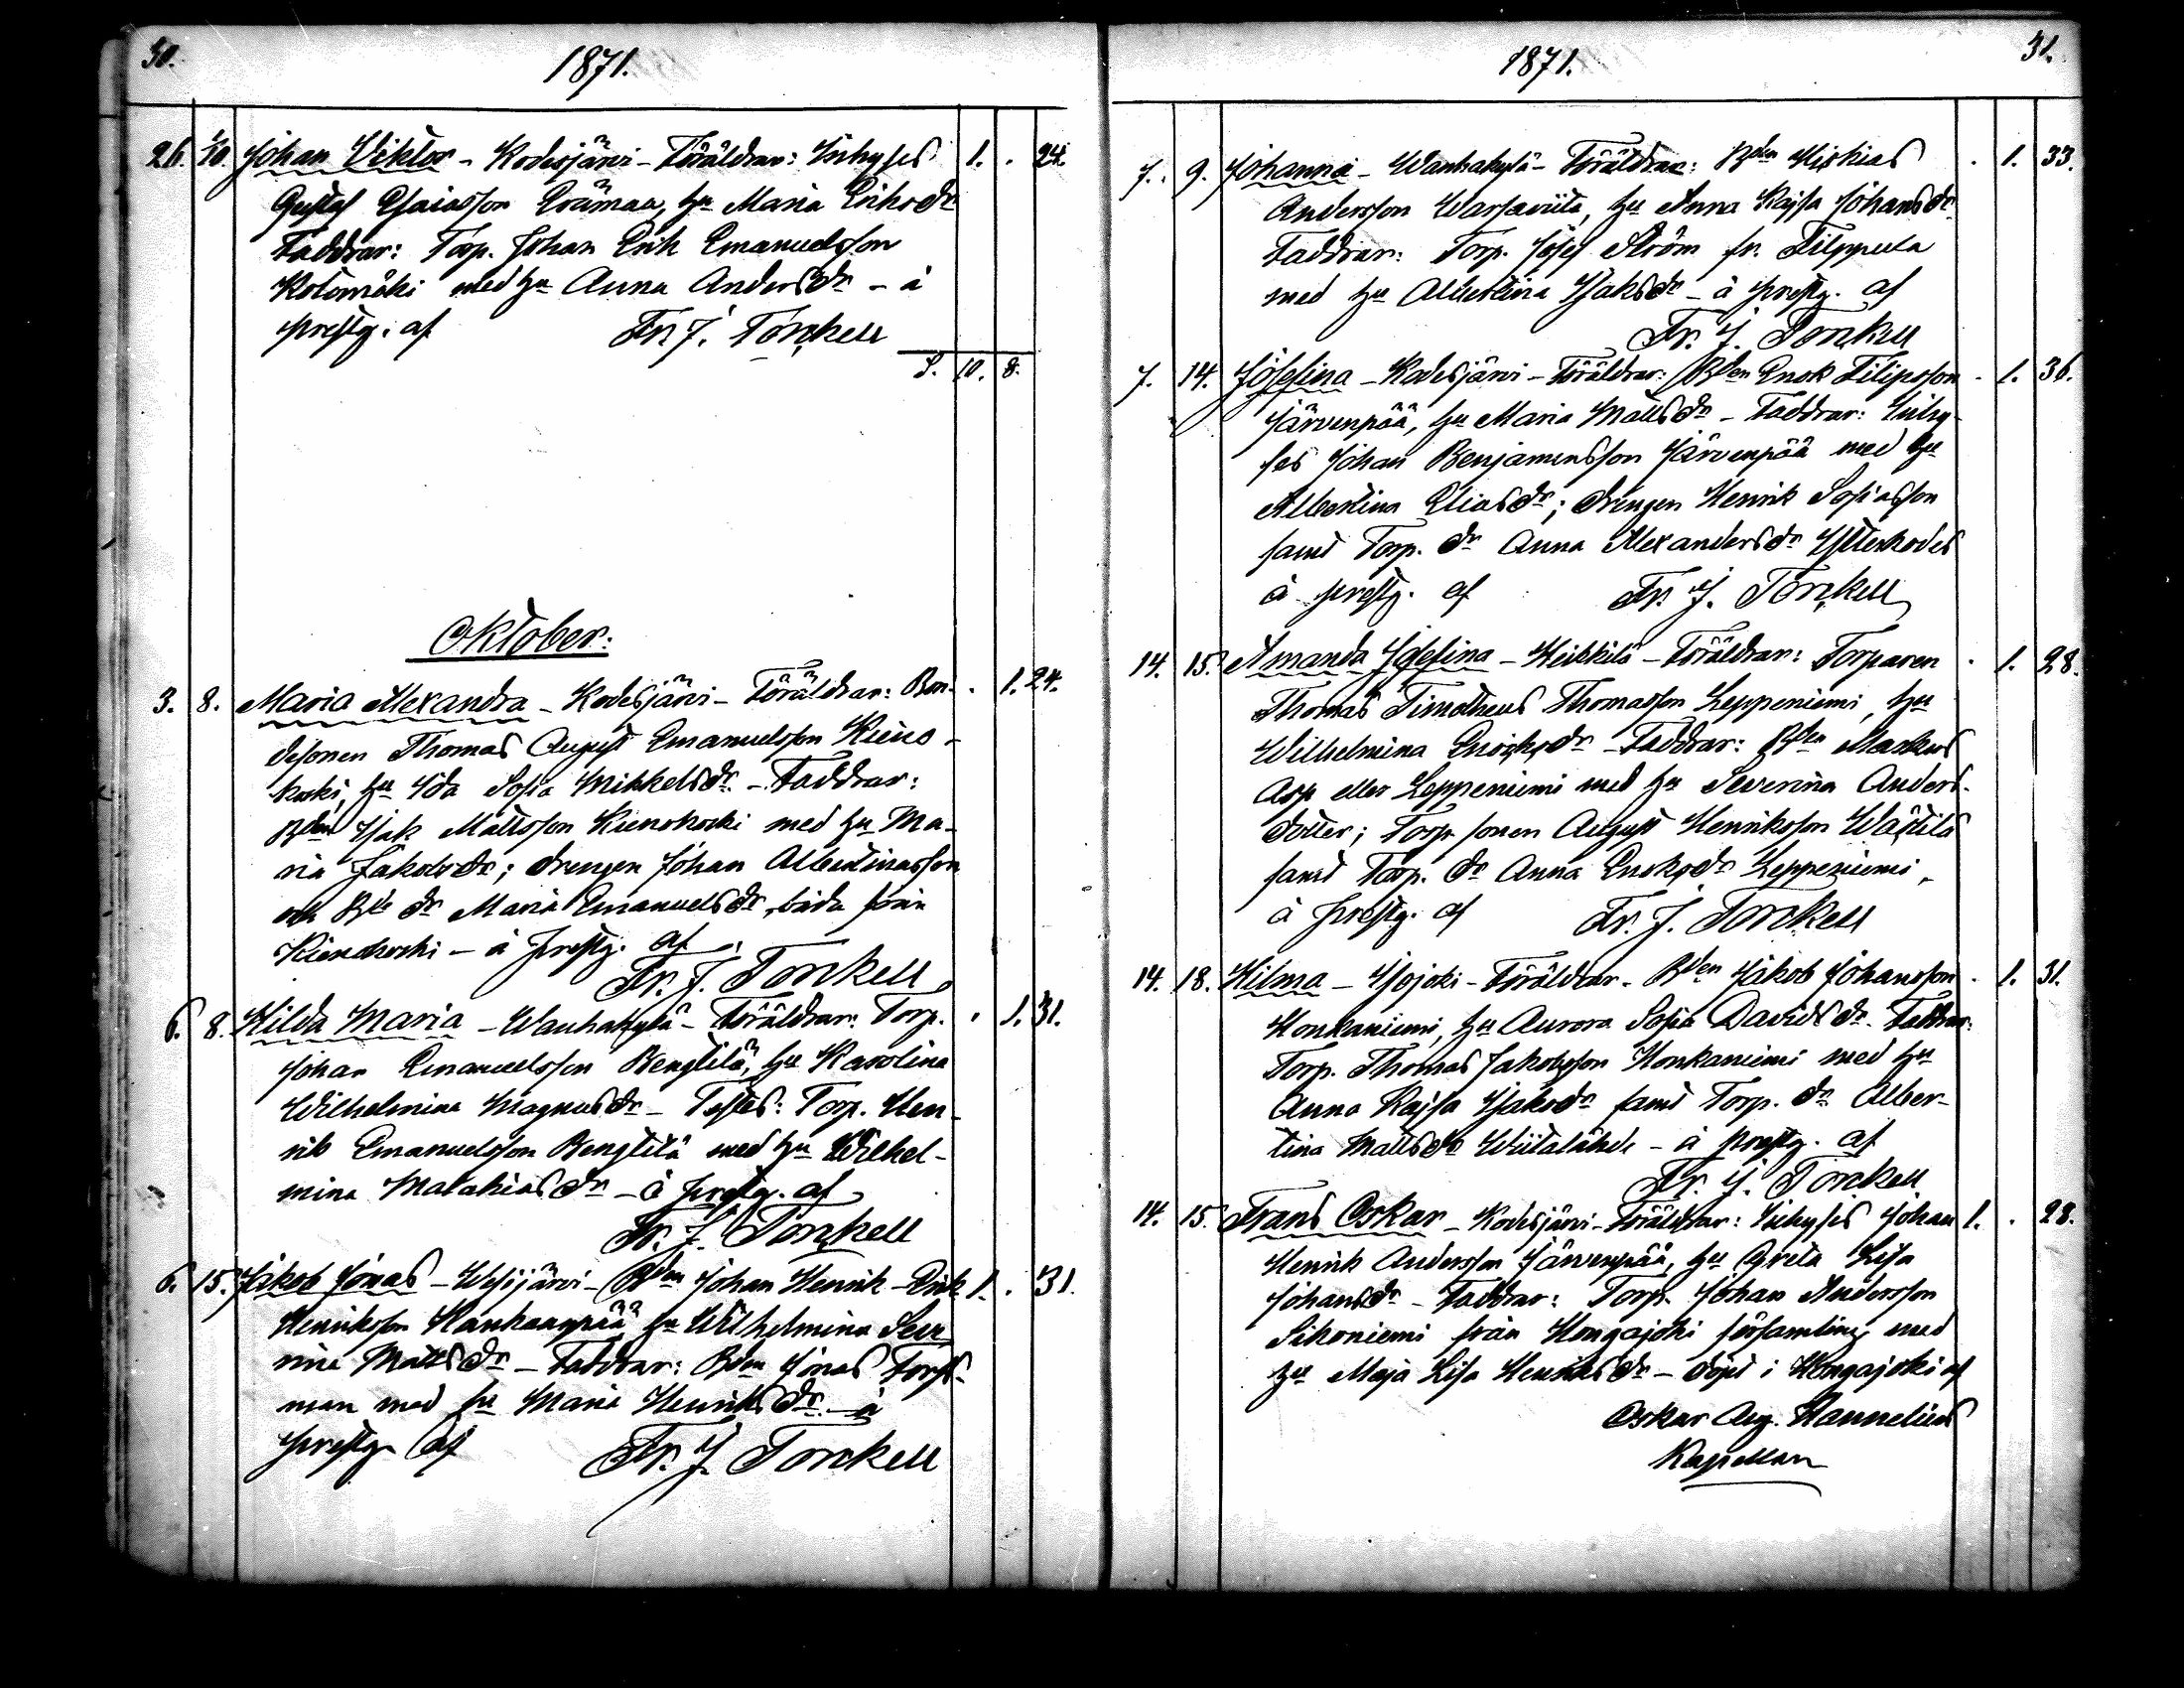 30.
1871.
26. 1/10. Johan Viktor - Kodesjärvi - Föräldrar: Inhyses 1. . 24.
Gustaf Esaiasson Erämaa, hu Maria Eriksdr
Faddrar: Torp. Johan Erik Emanuelsson
Kotomäki med hu Anna Andersdr - å
prestg. af Fr. J. Torckell
S. 10. 8.
Oktober:
3. 8. Maria Alexandra - Kodesjärvi - Föräldrar: Bon- . 1. 24.
desonen Thomas August Emanuelsson Kieno-
koski, hu Ida Sofia Mikkelsdr. - Faddrar:
Bden Isak Mattsson Kienokoski med hu Ma-
ria Jakobsdr; drengen Johan Albertinasson
och Bde dr Maria Emanuelsdr, båda från
Kienokoski - å prestg. af
Fr. J. Torckell
6. 8. Hilda Maria - Wanhakylä - Föräldrar: Torp. . 1. 31.
Johan Emanuelsson Bengtilä, hu Karolina
Wilhelmina Magnusdr - Testes: Torp. Hen-
rik Emanuelsson Bengtilä med hu Wilhel-
mina Malakiasdr - å prestg. af
Fr. J. Torckell
6. 15. Jakob Jonas - Wesijärvi - Bden Johan Henrik - Erik 1. . 31.
Henriksson Kankaanpää hu Wilhelmina Seve
rina Mattsdr - Faddrar: Bden Jonas Fors-
man med hu Maria Henriksdr. - å
prestg. af Fr. J. Torckell
1871.
31.
7. 9. Johanna - Wanhakylä - Föräldrar: Bden Hiskias . 1. 33.
Andersson Warsaviita, hu Anna Kajsa Johansdr
Faddrar: Torp. Josef Ström fr. Filppula
med hu Albertina Isaksdr - å prestg. af
Fr. J. Torckell
7. 14. Josefina - Kodesjärvi - Föräldrar: Bden Enok Filipsson . 1. 36.
Järvenpää, hu Maria Mattsdr - Faddrar: Inhy-
ses Johan Benjaminsson Järvenpää med hu
Albertina Eliasdr; drengen Henrik Sofiasson
samt Torp. dr Anna Alexandersdr Ytterkodes
å prestg. af Fr. J. Torckell
14. 15. Amanda Josefina - Heikkilä - Föräldrar: Torparen . 1. 28.
Thomas Timotheus Thomasson Leppeniemi, hu
Wilhelmina Enoksdr - Faddrar: Bden Markus
Asp eller Leppeniemi med hu Severina Anders-
dotter; Torp. sonen August Henriksson
samt Torp. dr Anna Enoksdr Leppeniemi,
å prestg. af Fr. J. Torckell
14. 18. Hilma - Isojoki - Föräldrar. Bden Jakob Johansson . 1. 31.
Honkaniemi, hu Aurora Sofia Davidsdr. Faddrar:
Torp. Thomas Jakobsson Honkaniemi med hu
Anna Kajsa Isaksdr samt Torp. dr Alber-
tina Mattsdr Wiitalähde - å prestg. af
Fr. J. Torckell
14. 15. Frans Oskar - Kodesjärvi - Föräldrar: Inhyses Johan 1. . 28.
Henrik Andersson Järvenpää, hu Greta Lisa
Johansdr - Faddrar: Torp. Johan Andersson
Sikoniemi från Hongajoki församling med
hu Maja Lisa Henriksdr - döpt i Hongajoki af
Oskar Aug. Hannelius
Kapellan